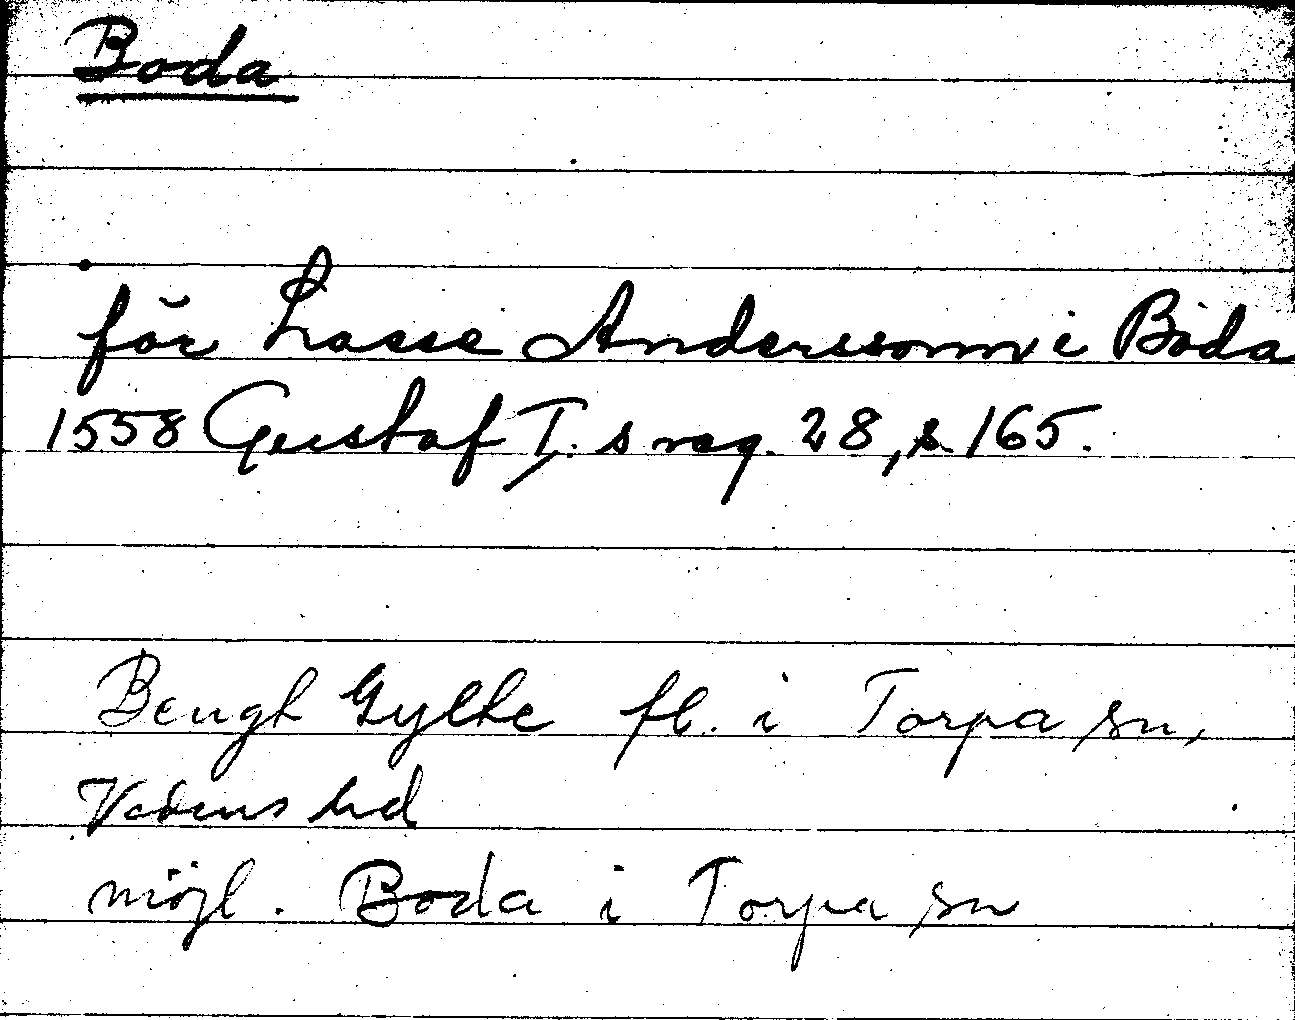 Boda
för Lasse Anderssonn i Boda
1558 Gustaf I:s reg. 28, s. 165.
Bengt Gylte fl. i Torpa sn,
Vedens hd
möjl. Boda i Torpa sn